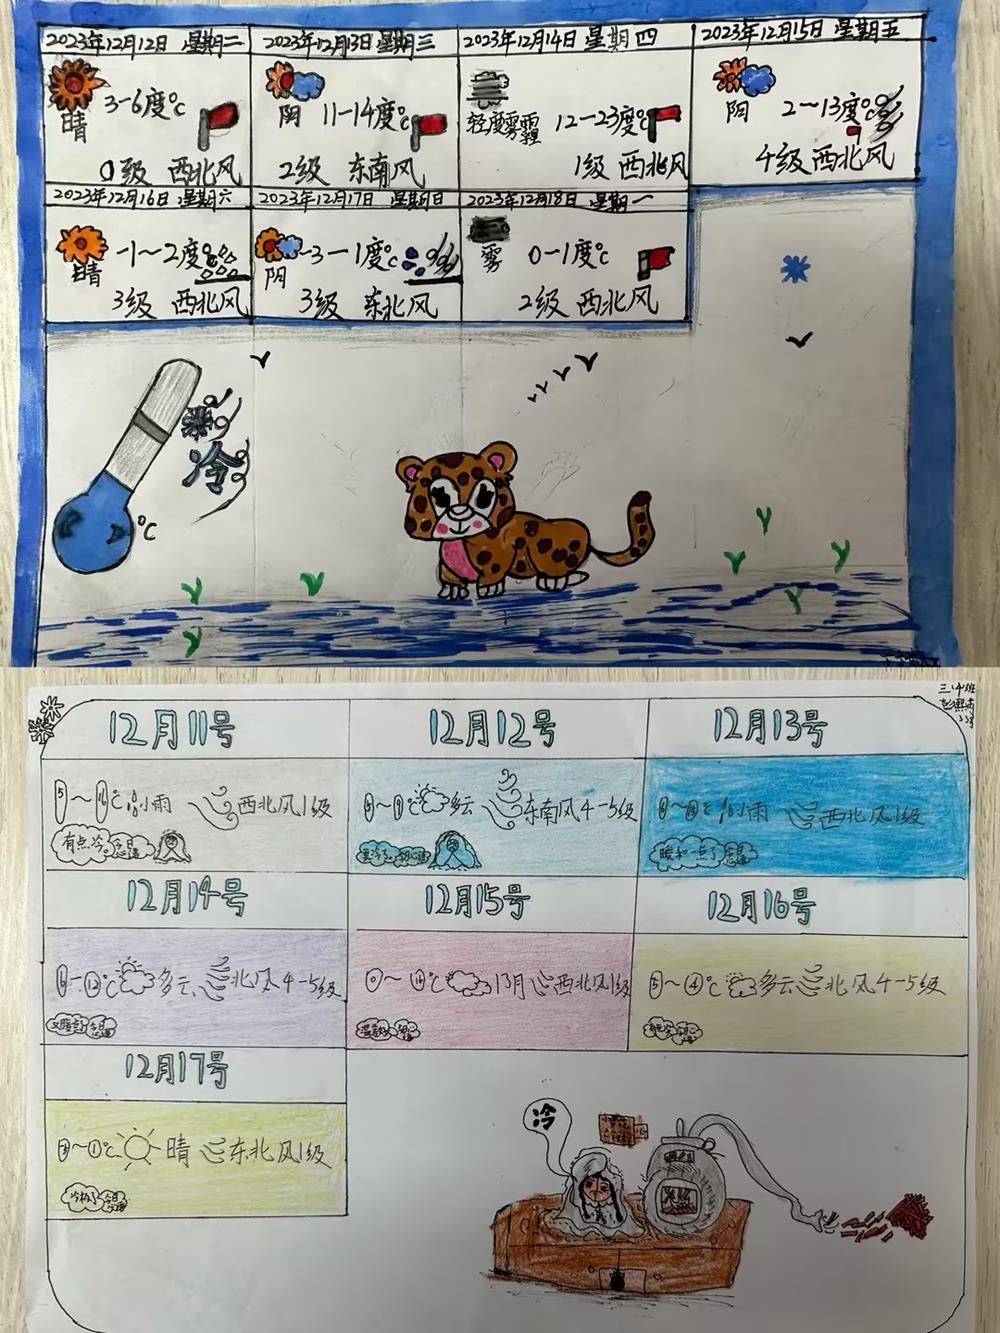 2023年12月12日 星期二
2023年12月13日 星期三
2023年12月14日 星期四
2023年12月15日 星期五
3-6度℃
晴
0级 西北风
11-14度℃
阴
2级 东南风
12-23度℃
轻度雾霾
1级 西北风
2-13度℃
阴
4级 西北风
2023年12月16日 星期六
2023年12月17日 星期日
2023年12月18日 星期一
-1~2度℃
晴
3级 西北风
-3-1度℃
阴
3级 东北风
0-1度℃
雾
2级 西北风
冷
℃
三.4班
12月11号
12月12号
12月13号
小雨 西北风1级
有点冷。
多云 东南风4-5级
小雨 西北风1级
暖和一点了
12月14号
12月15号
12月16号
多云 北风4-5级
西北风1级
多云 北风4-5级
12月17号
晴 东北风1级
冷